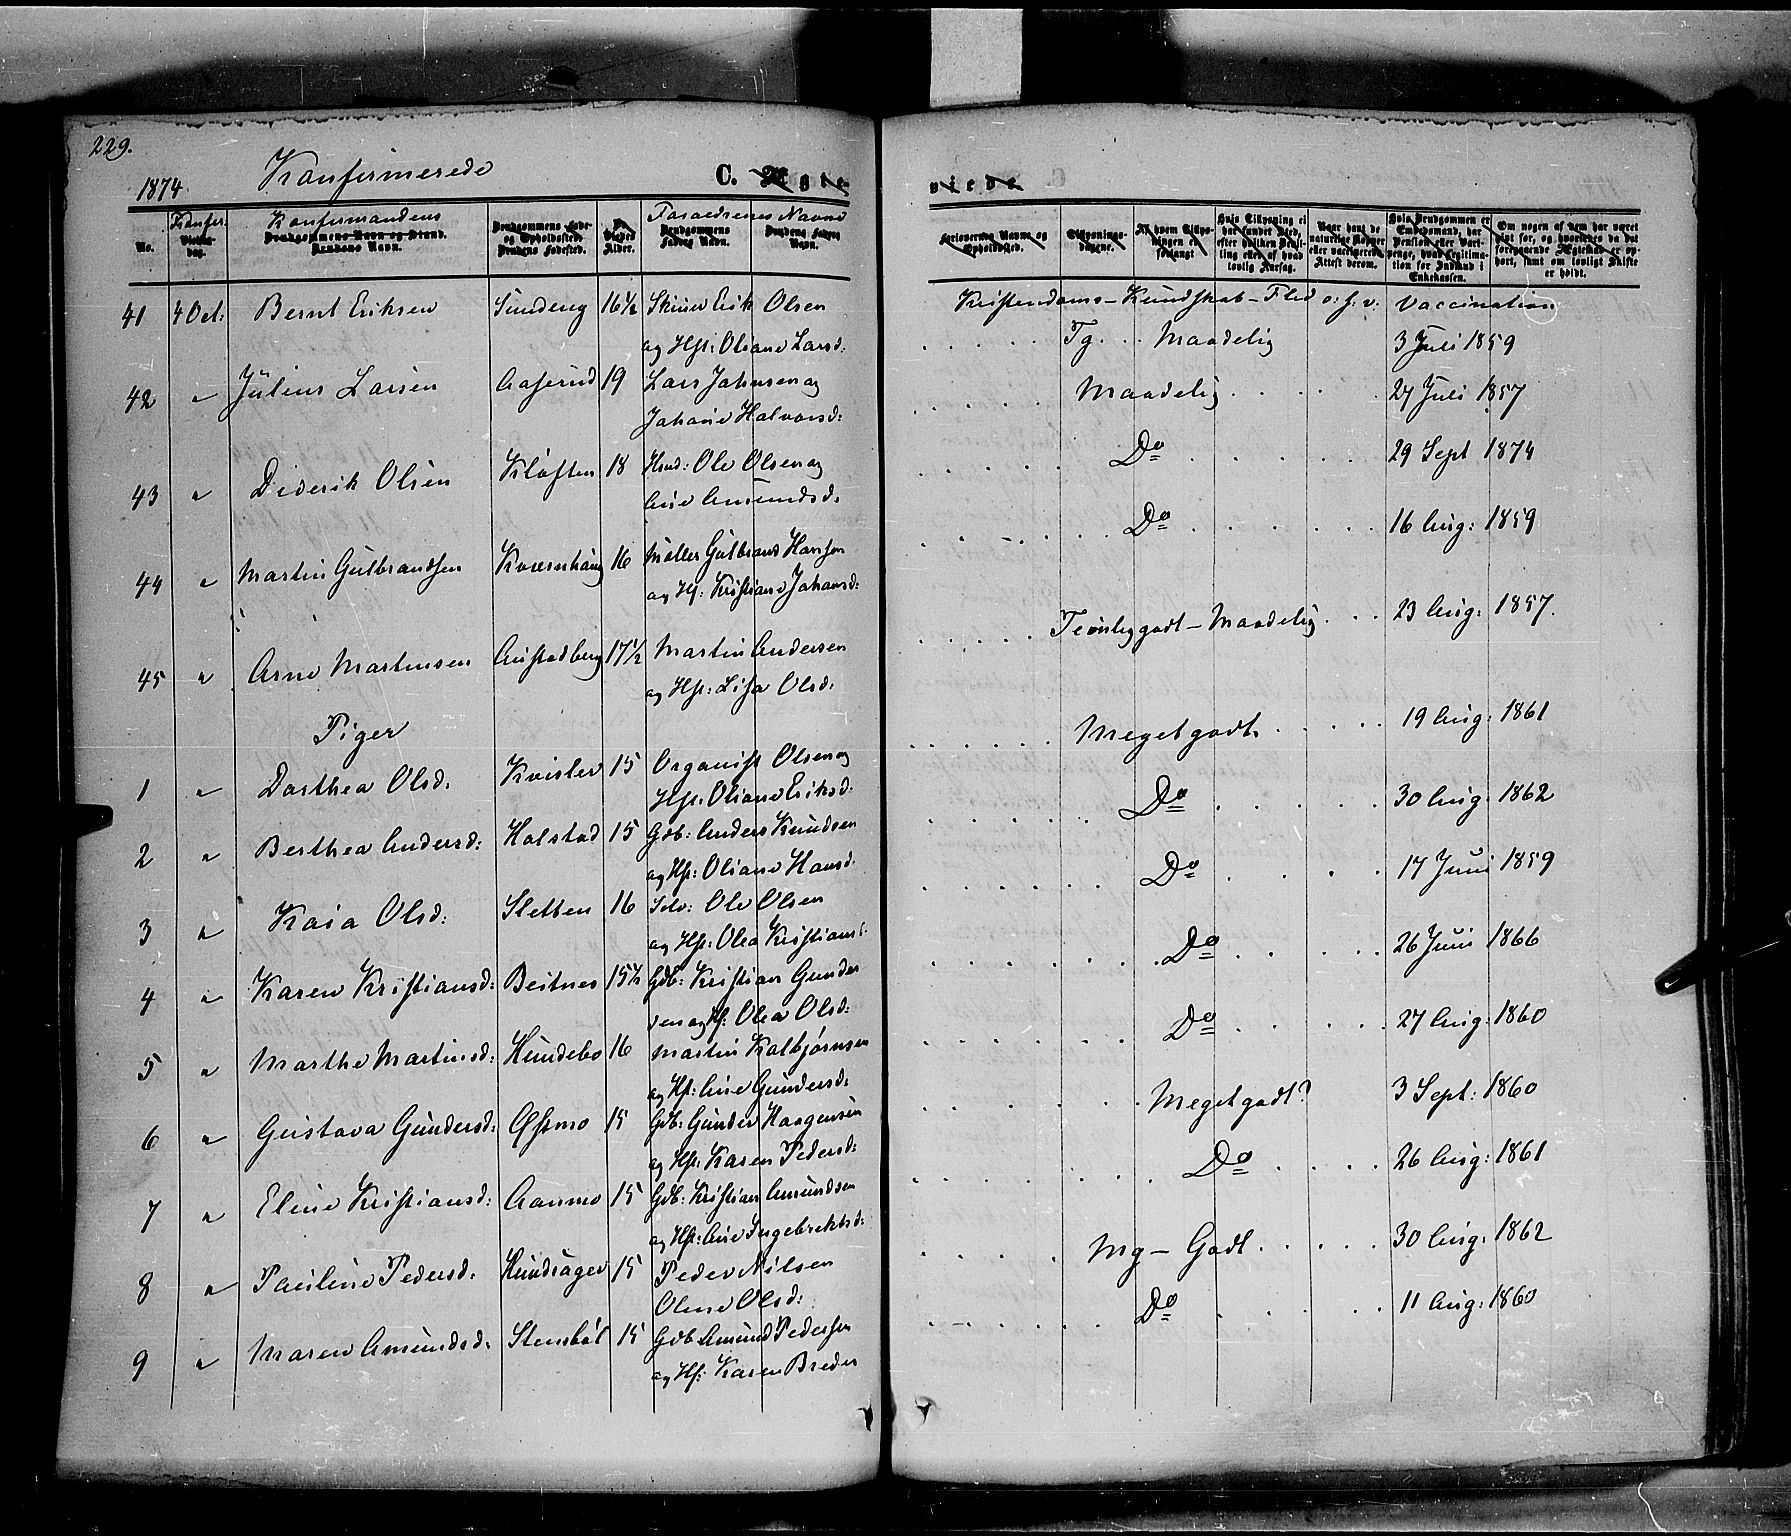 229.
1874 Konfirmerede C. Ægte-
viede.
No. Konfir- Konfirmandens Foraedrenes Navne
41 4 Oct: Bernt Eriksen Sundeng 16½ Skriver Erik Olsen
og Hst: Oliane Larsd:
42 " Julius Larsen Aaserud 19 Lars Johnsen og
Johane Halvorsd:
43 " Diderik Olsen Kløften 18 Hmd: Ole Olsen og
Ane Amundsd:
44 " Martin Gulbrandsen Kværnhaug 16 Møller Gulbrand Hansen
og Hst: Kristiane Johansd:
45 " Arne Martinsen Austadberg 17½ Martin Andersen
og Hst: Lisa Olsd:
Piger
1 " Dorthea Olsd: Kvisler 15 Organist Olsen og
Hst: Oliane Eriksd:
2 " Berthea Andersd: Holstad 15 Gdb: Anders Knudsen
og Hst: Oliane Hansd:
3 " Kaia Olsd: Sletten 16 Selv: Ole Olsen
og Hst: Olea Kristians
4 " Karen Kristiansd: Beitnes 15½ Gdb: Kristian Gunder
sen og Hst: Olea Olsd:
5 " Marthe Martinsd: Hundebo 16 Martin Kolbjørnsen
og Hst: Ane Gundersd:
6 " Gustava Gundersd: Østmo 15 Gdb: Gunder Haagensen
og Hst: Karen Pedersd:
7 " Eline Kristiansd: Aanmo 15 Gdb: Kristian Amundsen
og Hst: Ane Ingebrektsd:
8 " Pauline Pedersd: Hundsager 15 Peder Nilsen
Oline Olsd:
9 " Maren Amundsd: Stensbøl 15 Gdb Amund Pedersen
og Hst: Karen Breder
Kristendoms-Kundskab-Flid o:s:v: Vaccination
Tg. Maadelig 3 Juli 1859
Maadelig 27 Juli 1857
Do 29 Sept 1874
Do 16 Aug: 1859
Temlig godt-Maadelig 23 Aug: 1857.
Meget godt 19 Aug: 1861
Do 30 Aug: 1862
Do 17 Juni 1859
Do 26 Juni 1866
Do 27 Aug: 1860
Meget godt? 3 Sept: 1860
Do 26 Aug: 1861
Mg-Godt 30 Aug: 1862
Do 11 Aug: 1860